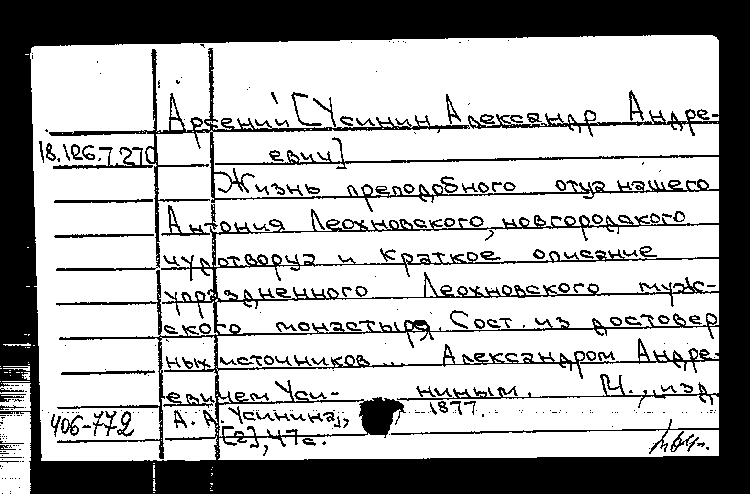 Арсений [Усинин, Александр Андре-
18.126.7.270 евич]
Жизнь преподобного отца нашего
Антония Леохновского, новгородского
чудотворца и краткое описание
упраздненного Леохновского муж-
ского монастыря. Сост. из достовер
ных источников ... Александром Андре-
евичем Уси- ниным. М., изд.
А. А. Усинина, 1877.
406-772 [2], 47 с.